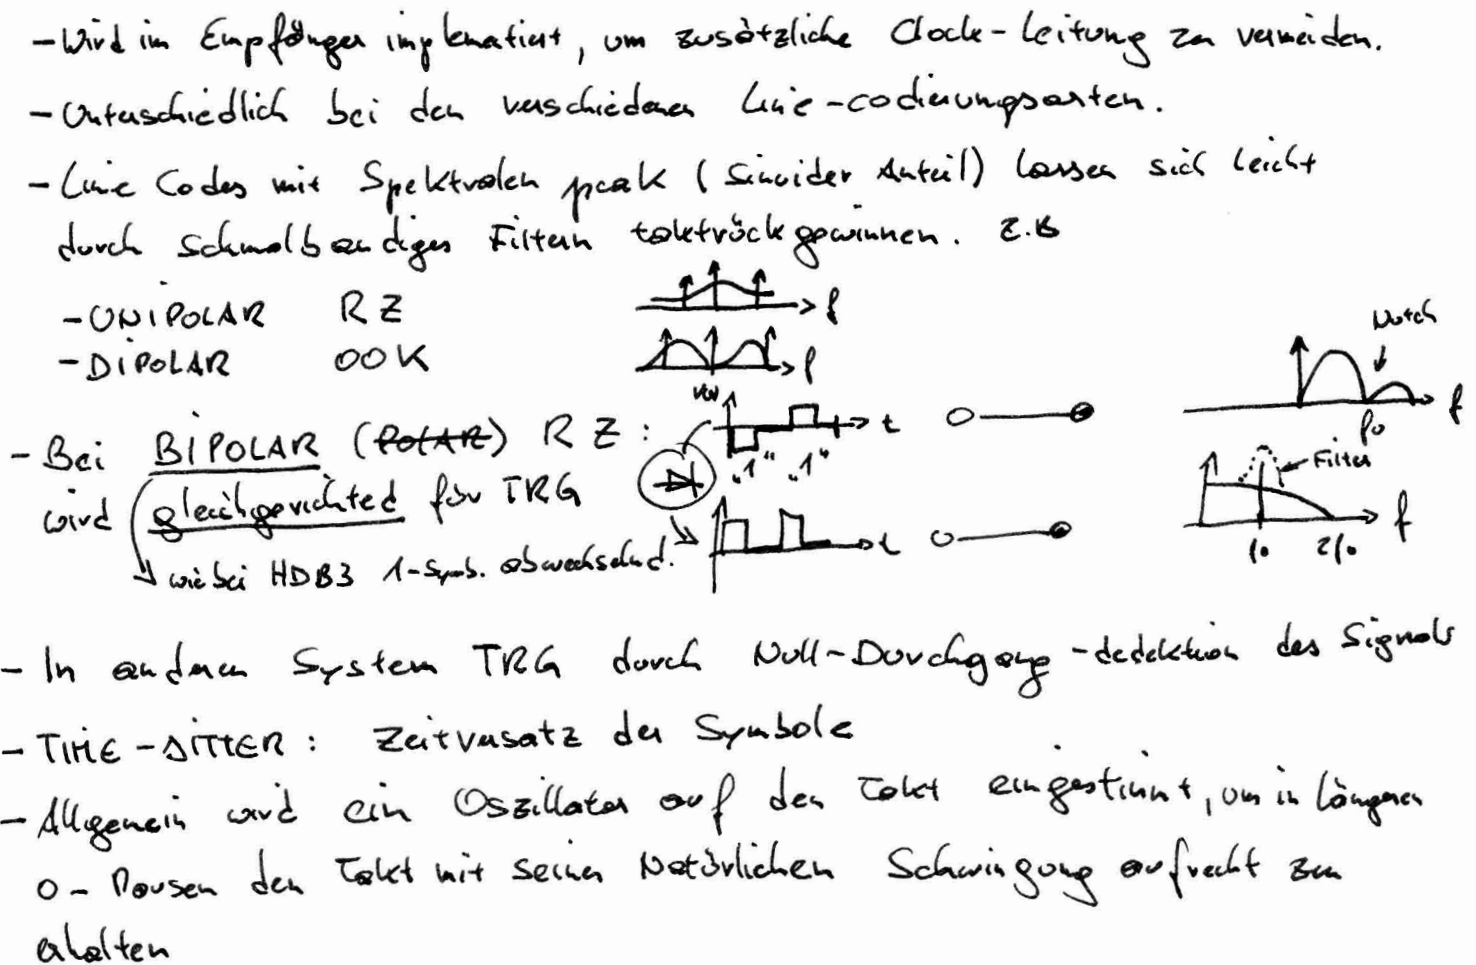 - Wird im Empfänger implementiert, um zusätzliche Clock-Leitung zu vermeiden.
- Unterschiedlich bei den verschiedenen Line-codierungsarten.
- Line Codes mit Spektralen peak (Sinoider Anteil) lassen sich leicht
durch schmalbandiges Filtern taktrückgewinnen. z.B
- UNIPOLAR RZ f
- DIPOLAR OOK f
Notch
f
f0
- Bei BIPOLAR (POLAR) RZ: t
"1" "1"
Filter
wird gleichgerichted für TRG t
f
f0 2f0
wie bei HDB3 1-Symb. abwechselnd.
- In anderen System TRG durch Null-Durchgang-dedektion des Signals
- TIME-JITTER: Zeitversatz der Symbole
- Allgemein wird ein Oszillator auf den Takt eingestimmt, um in längeren
0-Pausen den Takt mit seiner Natürlichen Schwingung aufrecht zu
erhalten